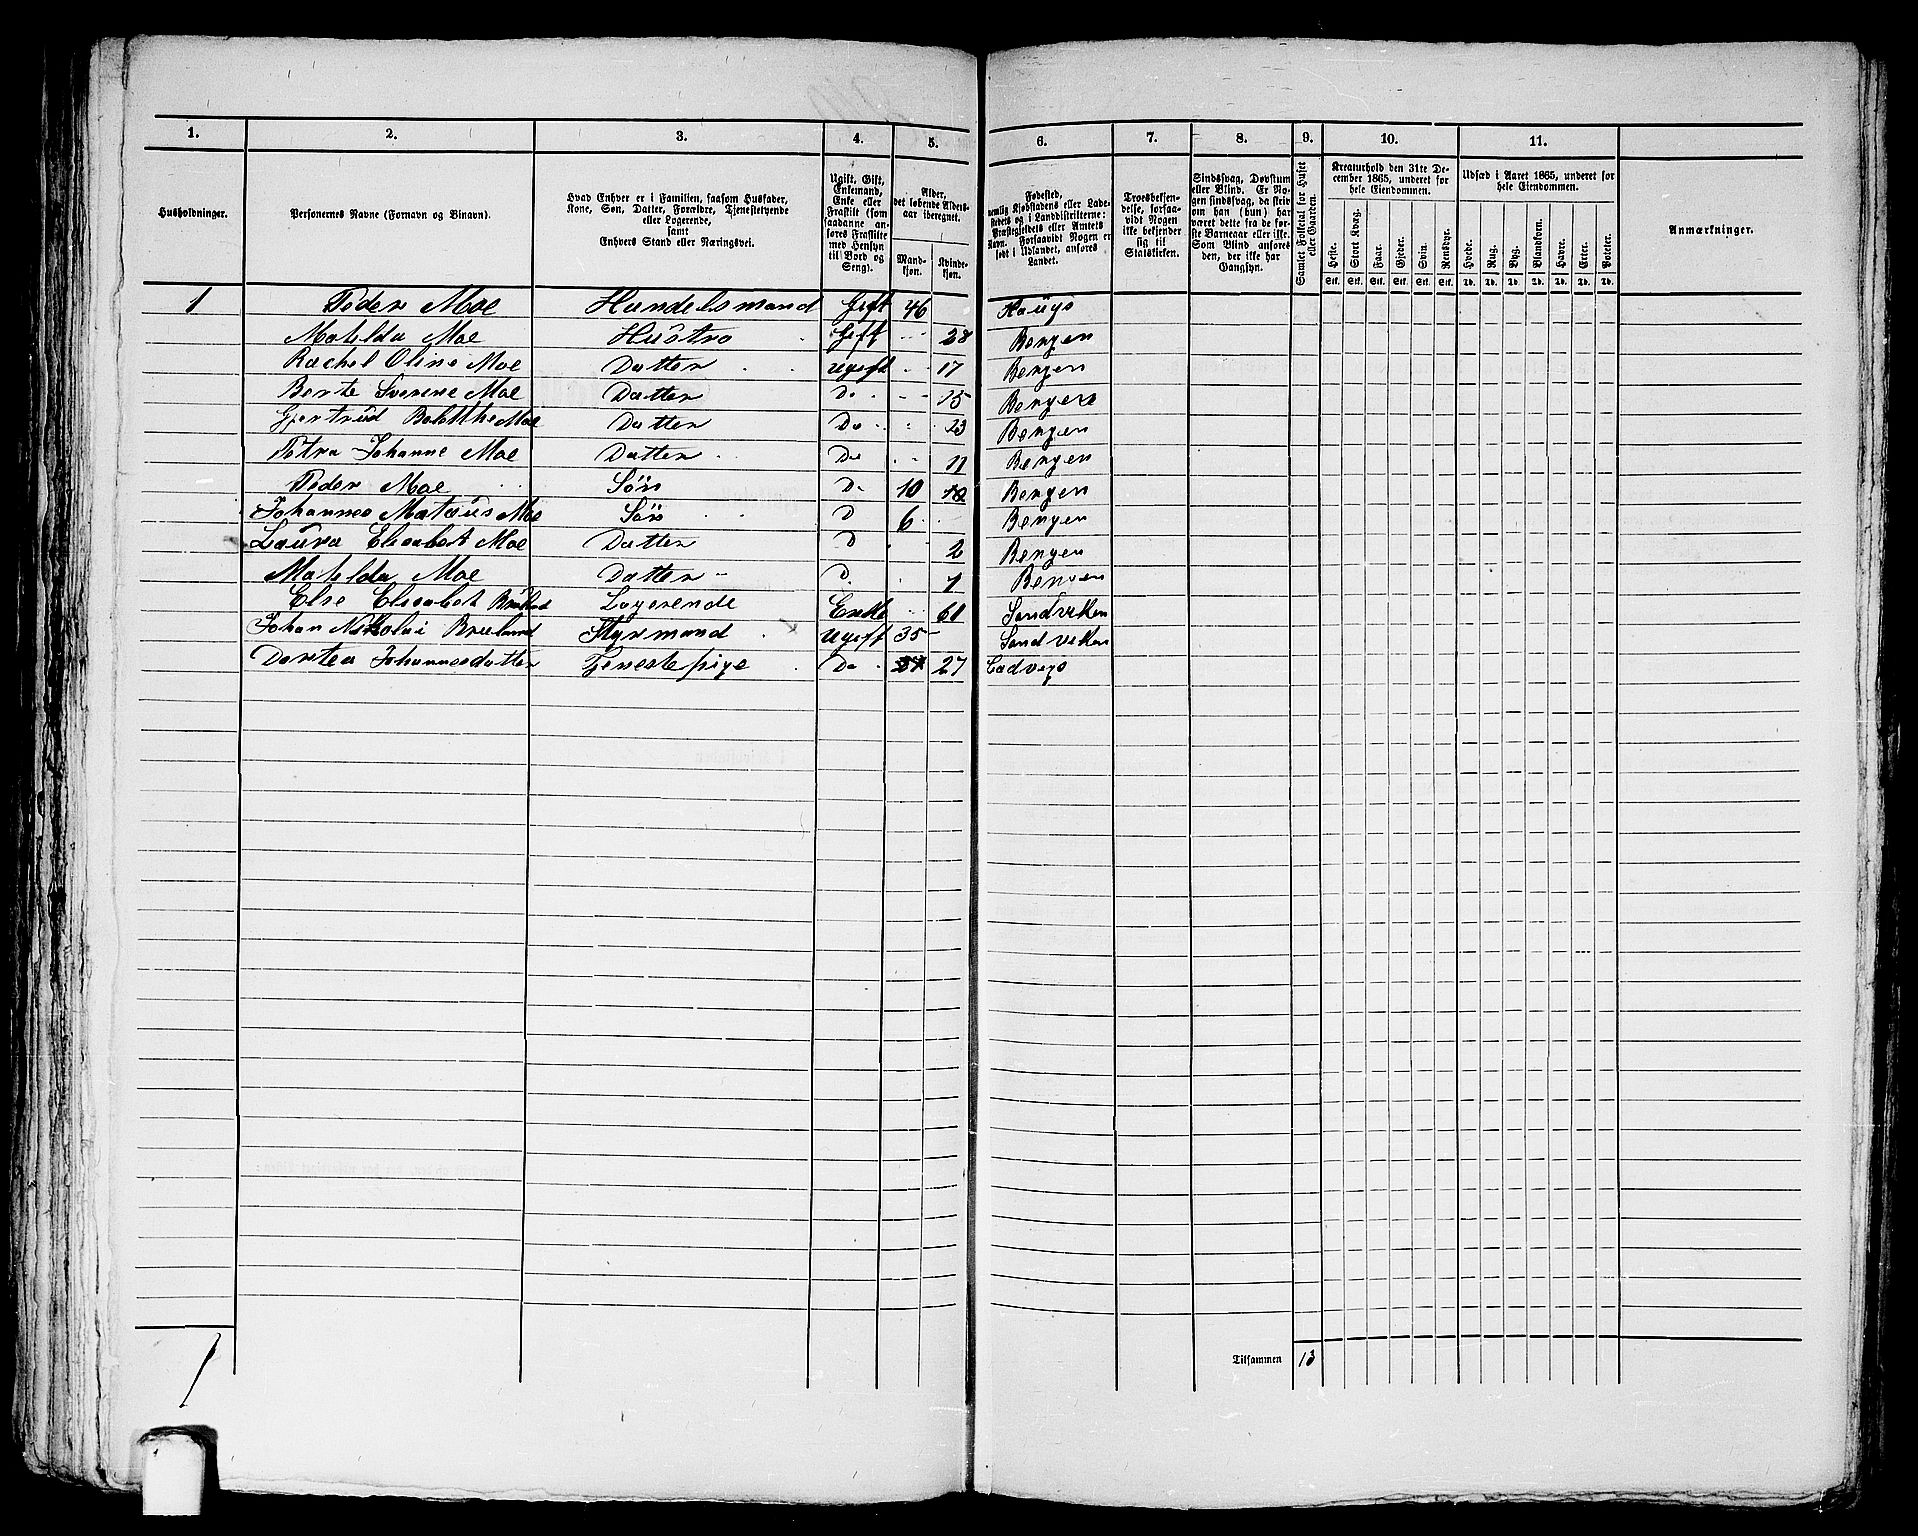 1. 2. 3. 4. 5. 6. 7. 8. 9. 10. 11.
Husholdninger.
Personernes Navne (Fornavn og Binavn).
Hvad Enhver er i Familien, saasom Husfader,
Kone, Søn, Datter, Forældre, Tjenestetyende
eller Logerende,
samt
Enhvers Stand eller Næringsvei.
Ugift, Gift,
Enkemand,
Enke eller
Fraskilt (som
saadanne an-
føres Fraskilte
med Hensyn
til Bord og
Seng).
Alder,
det løbende Alders-
aar iberegnet.
Mand-
kjøn.
Kvinde-
kjøn.
Fødested,
nemlig Kjøbstadens eller Lade-
stedets og i Landdistrikterne:
Præstegjeldets eller Amtets
Navn. Forsaavidt Nogen er
født i Udlandet, anføres
Landet.
Troesbekjen-
delse, forsaa-
vidt Nogen
ikke bekjender
sig til
Statskirken.
Sindssvag, Døvstum
eller Blind. Er No-
gen sindssvag, da skrives
om han (hun) har
været dette fra de før-
ste Barneaar eller ikke.
Som Blind anføres
den, der ikke har
Gangsyn.
Samlet Folketal for Huset
eller Gaarden.
Kreaturhold den 31te De-
cember 1865, underet for
hele Eiendommen.
Heste. Stort Kvæg. Faar. Gjeder. Svin. Rensdyr.
Stk. Stk. Stk. Stk. Stk. Stk.
Udsæd i Aaret 1865, underet for
hele Eiendommen.
Hvede. Rug. Byg. Blandkorn. Havre. Erter. Poteter.
Td. Td. Td. Td. Td. Td. Td.
Anmærkninger.
1 Peder Moe Handelsmand Gift 46 Haugs
Matilda Moe Hustro Gift 28 Bergen
Rachel Oline Moe Datter ugift 17 Bergen
Berte Sverene Moe Datter Do 15 Bergen
Gjertrud Bolette Moe Datter Do 13 Bergen
Petra Johanne Moe Datter Do 11 Bergen
Peder Moe Sön D. 10 10 Bergen
Johannes Mataus Moe Sön D 6 Bergen
Laura Elisabet Moe Datter D 2 Bergen
Matilda Moe Datter D. 1 Bergen
Else Elisabet Logerende Enke 61 Sandviken
Johan Nikolai Styrmand Ugift 35 Sandviken
Dortea Johannesdatter Tjenestepige Do 27 27
1
Tilsammen 13